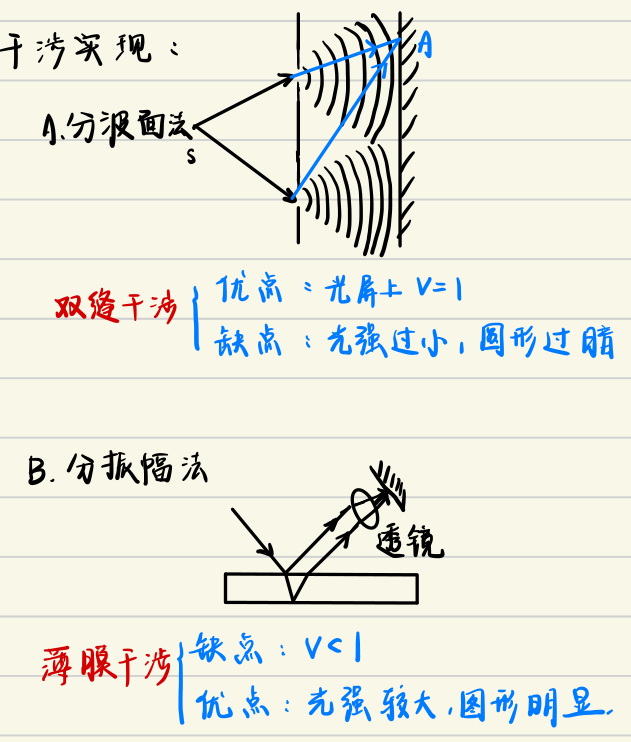 干涉实现：
A
A.分波面法
S
双缝干涉
优点：光屏上 V=1
缺点：光强过小，图形过暗
B. 分振幅法
透镜
薄膜干涉
缺点：V<1
优点：光强较大，图形明显.